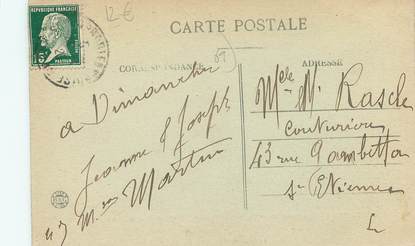 12€
RÉPUBLIQUE FRANÇAISE
15c
PASTEUR
POSTES
CARTE POSTALE
CORRESPONDANCE
ADRESSE
a Dimanche
Jeanne & Joseph
Martin
Mlle M. Rascle
Couturière
43 rue Gambetta
St Etienne
L